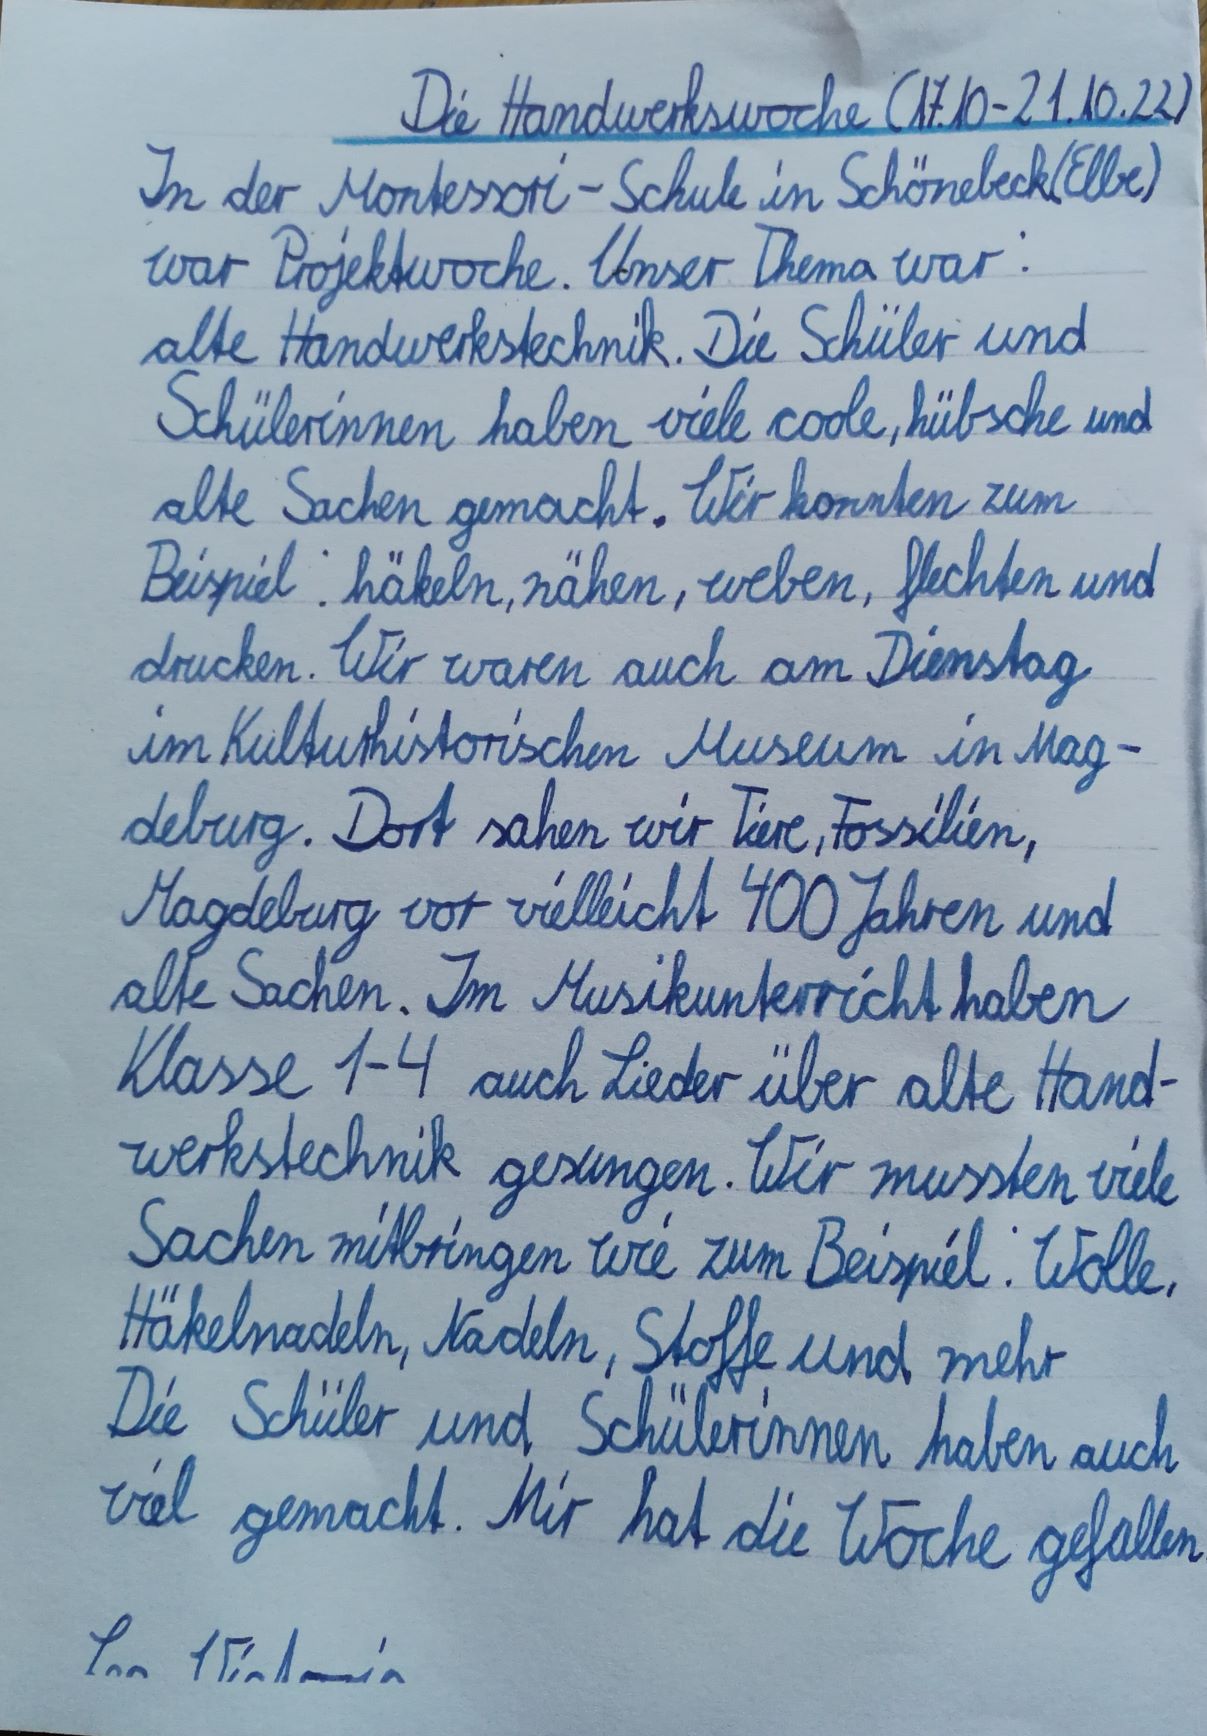 Die Handwerkswoche (17.10-21.10.22)
In der Montessori-Schule in Schönebeck(Elbe)
war Projektwoche. Unser Thema war:
alte Handwerkstechnik. Die Schüler und
Schülerinnen haben viele coole, hübsche und
alte Sachen gemacht. Wir konnten zum
Beispiel: häkeln, nähen, weben, flechten und
drucken. Wir waren auch am Dienstag
im Kulturhistorischen Museum in Mag-
deburg. Dort sahen wir Tiere, Fossilien,
Magdeburg vor vielleicht 400 Jahren und
alte Sachen. Im Musikunterricht haben
Klasse 1-4 auch Lieder über alte Hand-
werkstechnik gesungen. Wir mussten viele
Sachen mitbringen wie zum Beispiel: Wolle,
Häkelnadeln, Nadeln, Stoffe und mehr
Die Schüler und Schülerinnen haben auch
viel gemacht. Mir hat die Woche gefallen